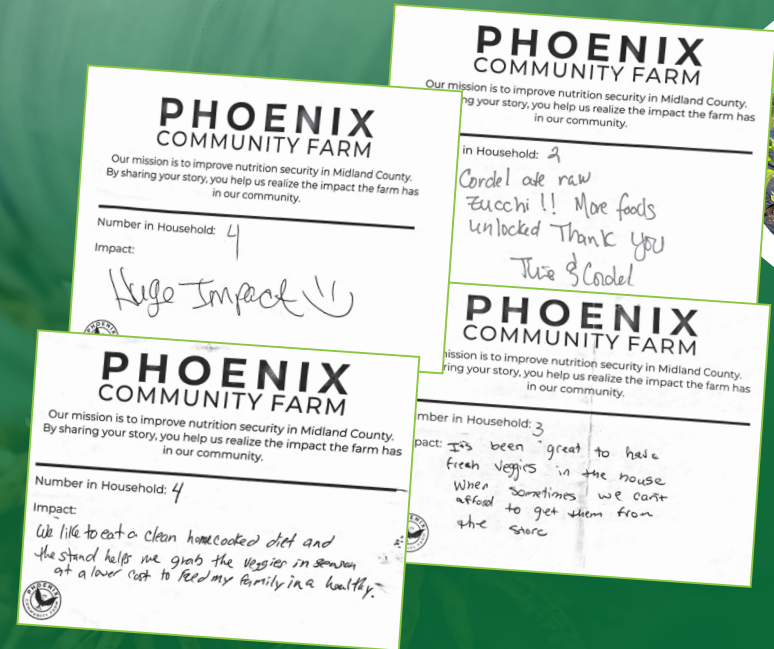 PHOENIX
COMMUNITY FARM
Our mission is to improve nutrition security in Midland County.
By sharing your story, you help us realize the impact the farm has
in our community.
Number in Household: 4
Impact:
Huge Impact
PHOENIX
COMMUNITY FARM
Our mission is to improve nutrition security in Midland County.
ing your story, you help us realize the impact the farm has
in our community.
in Household: 2
Cordel ate raw
Zucchi !! More foods
unlocked Thank you
& Cordel
PHOENIX
COMMUNITY FARM
Our mission is to improve nutrition security in Midland County.
By sharing your story, you help us realize the impact the farm has
in our community.
Number in Household: 4
Impact:
We like to eat a clean homecooked diet and
the stand helps me grab the veggies in season
at a lower cost to feed my family in a healthy.
PHOENIX
COMMUNITY FARM
PHOENIX
COMMUNITY FARM
ission is to improve nutrition security in Midland County.
ring your story, you help us realize the impact the farm has
in our community.
mber in Household: 3
pact: It's been great to have
fresh veggies in the house
when sometimes we can't
afford to get them from
the store